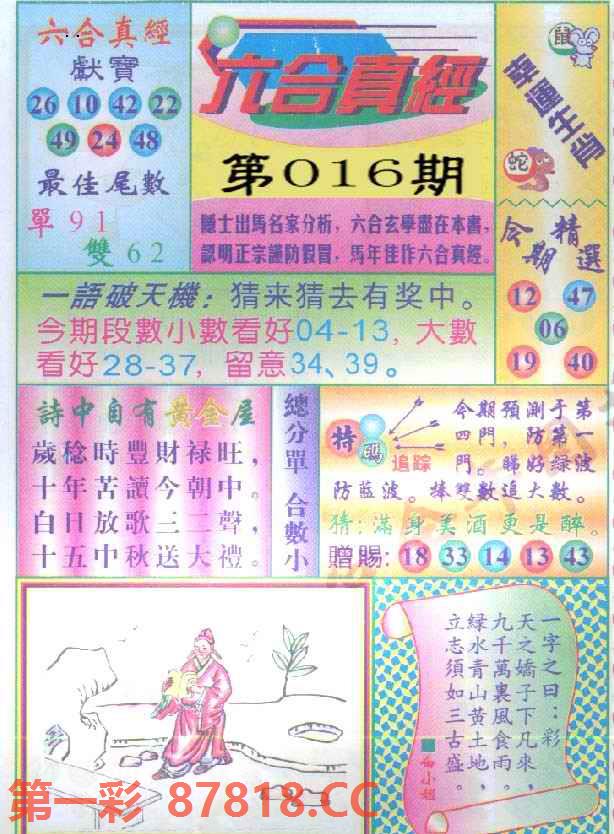 六合真經
獻寶
26 10 42 22
49 24 48
最佳尾數
單 9 1
雙 6 2
六合真經
第016期
隱士出馬名家分析，六合玄學盡在本書，
認明正宗謹防假冒，馬年佳作六合真經。
鼠
幸運生肖
蛇
今期精選
12 47
06
19 40
一語破天機：猜来猜去有奖中。
今期段數小數看好04-13，大數
看好28-37，留意34、39。
詩中自有黃金屋
歲稔時豐財禄旺，
十年苦讀今朝中。
白日放歌三二聲，
十五中秋送大禮。
總分單 合數小
特碼
追踪
今期預測于第
四門，防第一
門。睇好绿波
防藍波。捧雙數追大數。
猜：滿身美酒更是醉。
贈賜：18 33 14 13 43
一字之曰：彩
天之嬌子下凡來，
九千萬裏風食雨。
緑水青山黃土地，
立志須如三古盛。
白小姐
第一彩 87818.CC